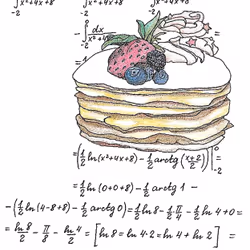 ∫x²+4x+8 ∫x²+4x+8 ∫x²+4x+8
-2 -2 -2
-∫dx/x²+4x
-2
=(1/2 ln(x²+4x+8) - 1/2 arctg(x+2/2))|⁰₋₂ =
= 1/2 ln(0+0+8) - 1/2 arctg 1 -
-(1/2 ln(4-8+8) - 1/2 arctg 0) = 1/2 ln 8 - 1/2 π/4 - 1/2 ln 4 + 0 =
= ln 8/2 - π/8 - ln 4/2 = [ln 8 = ln 4·2 = ln 4 + ln 2] =
=